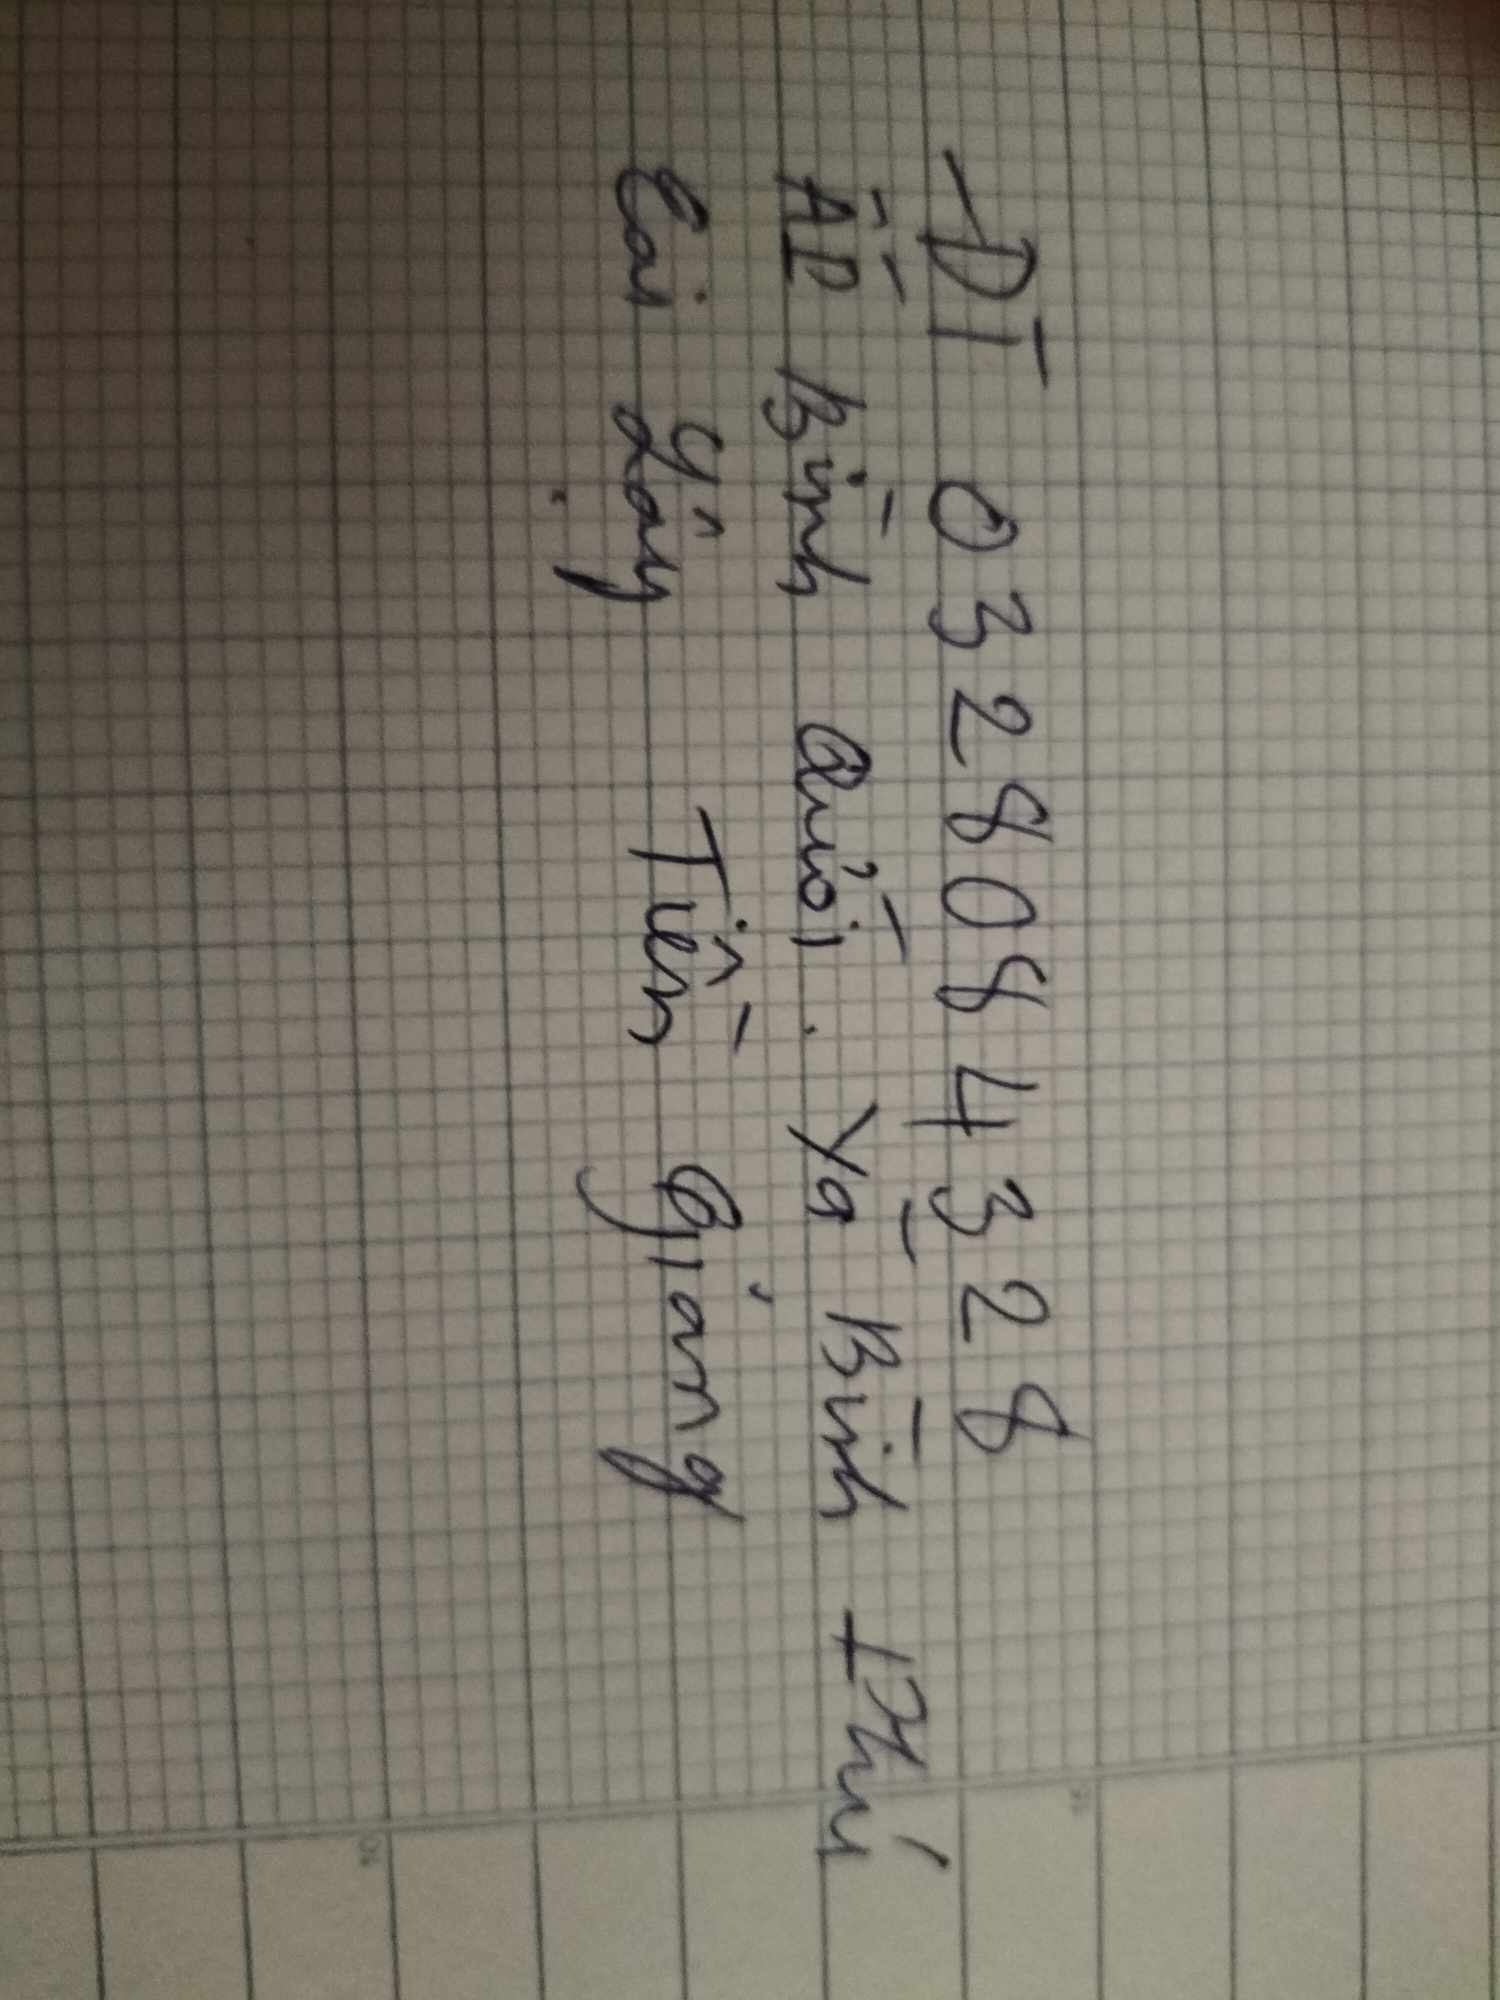 ĐT 0328084328
ẤP Bình Qưới. Xã Bình Phú
Cai Lậy Tiền Giang